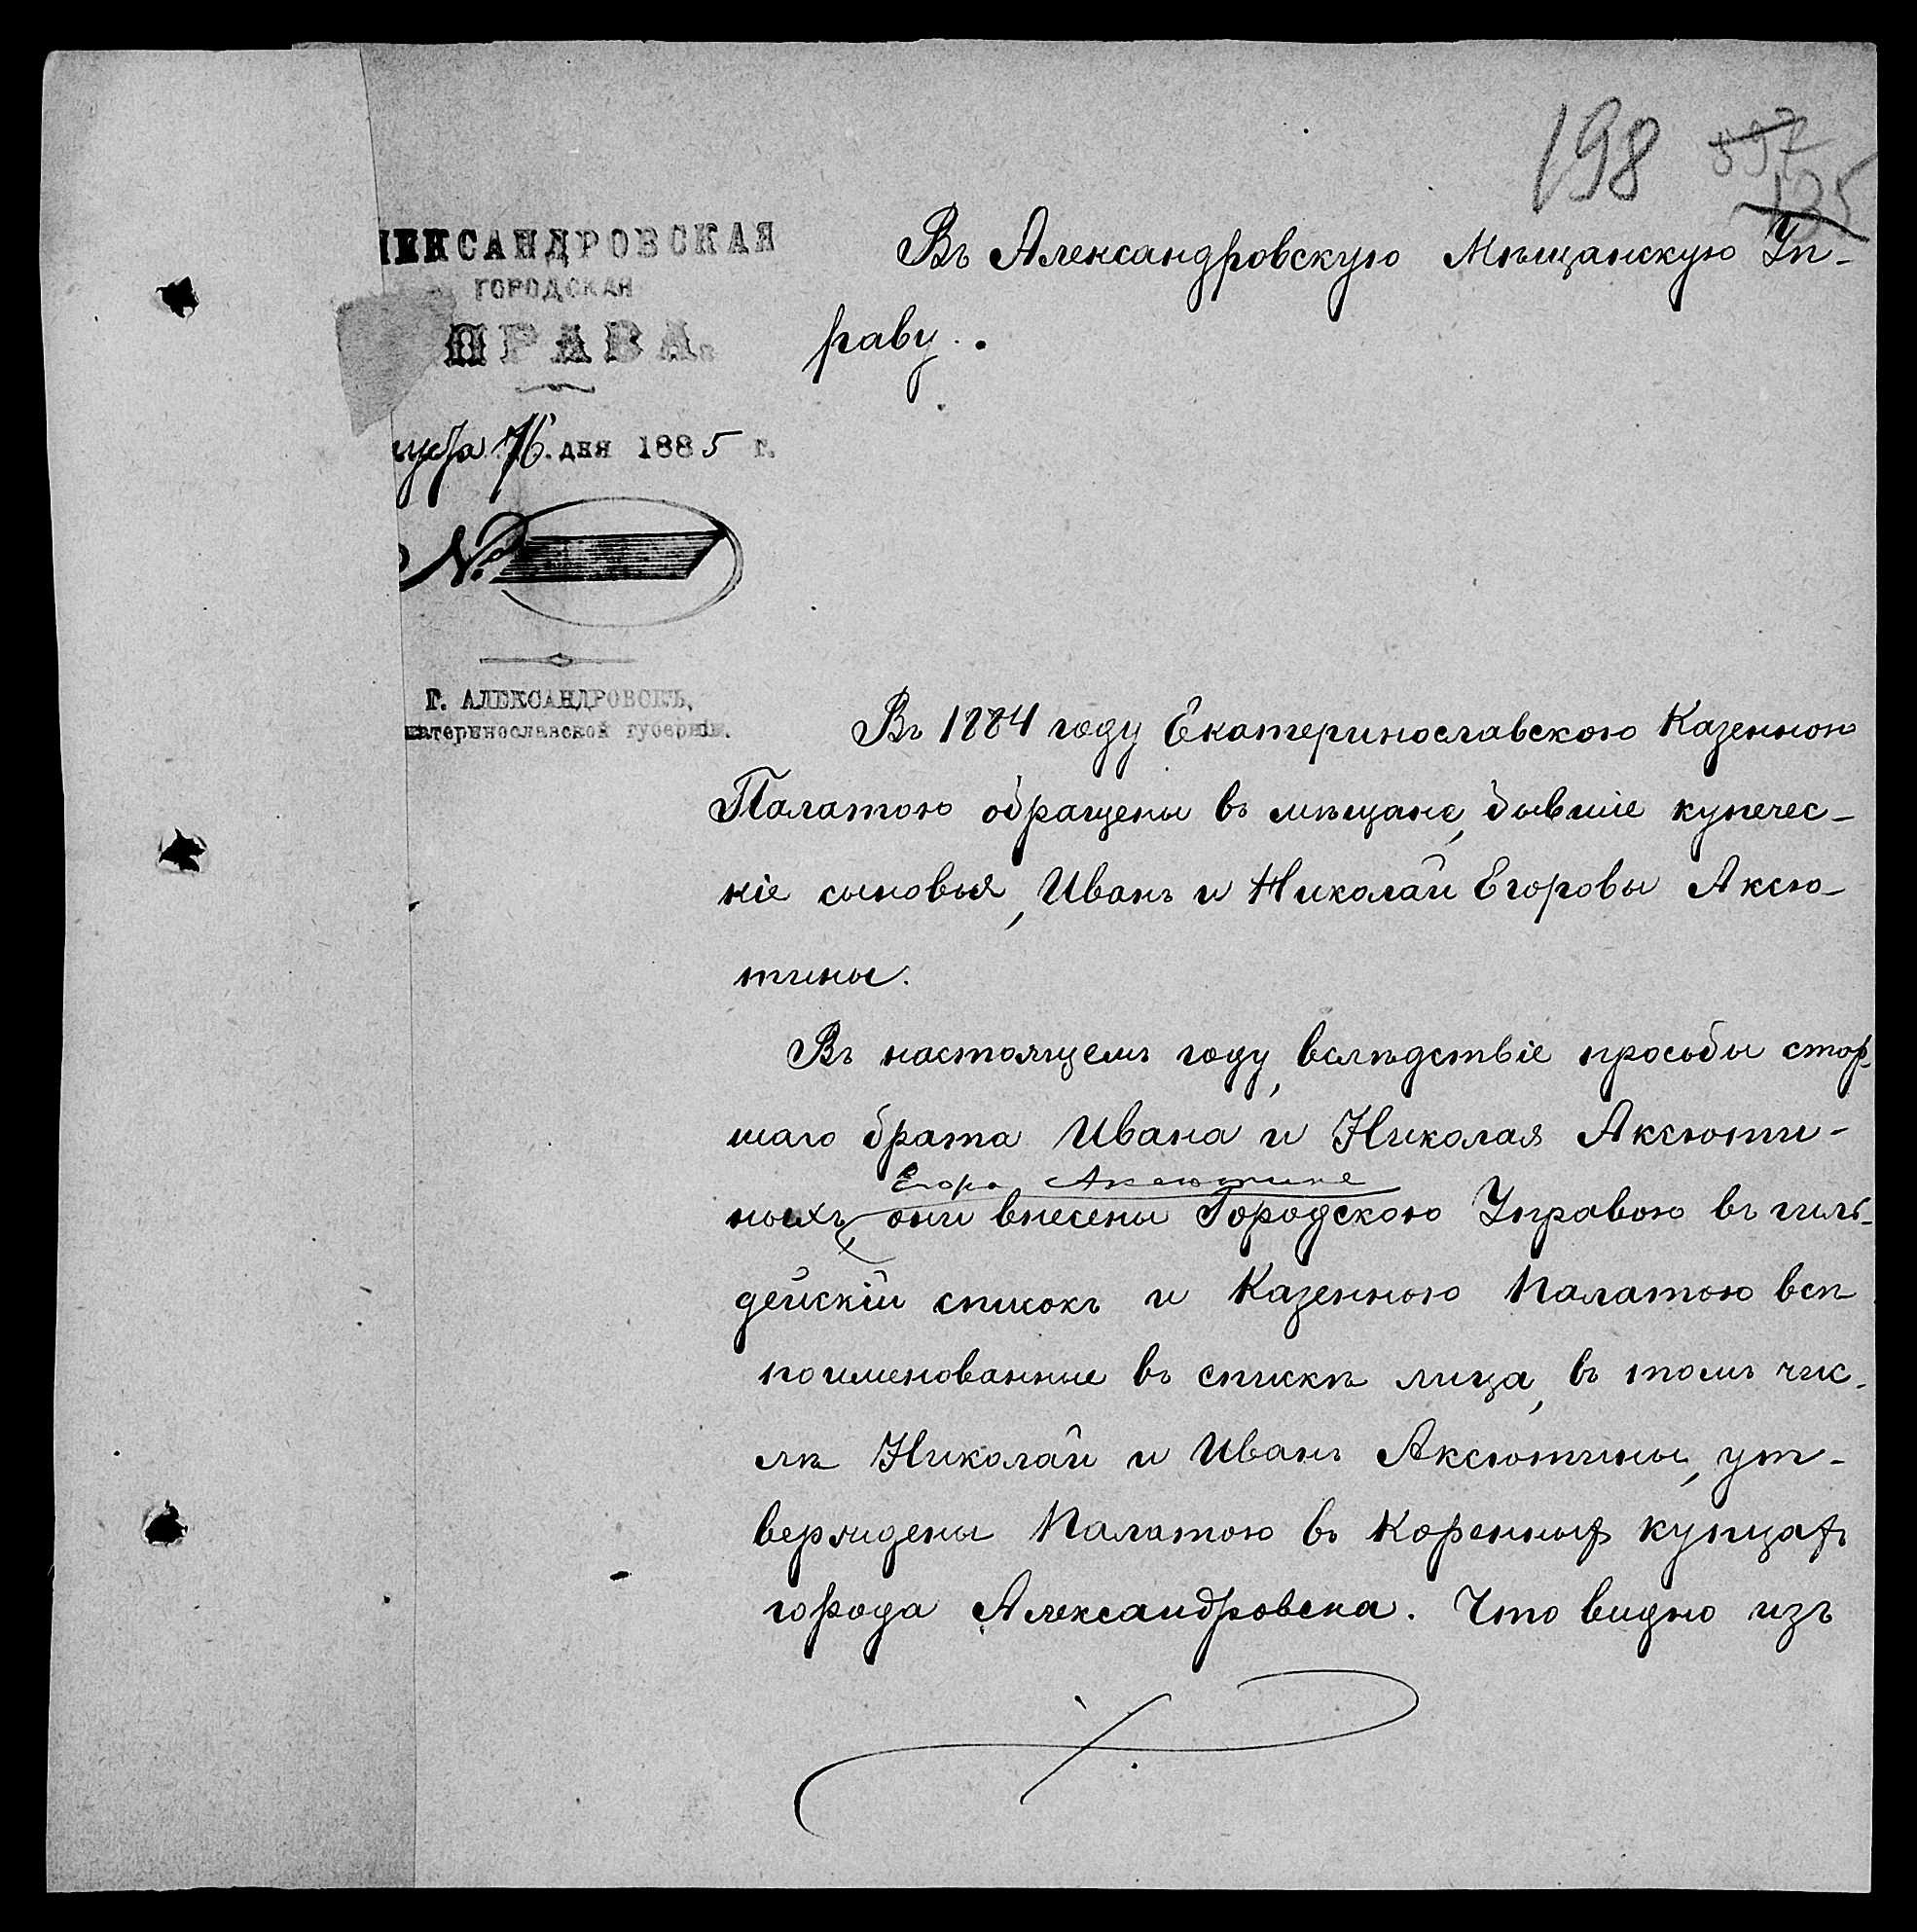 198
597
135
ЛЕКСАНДРОВСКАЯ
ГОРОДСКАЯ
ПРАВА.
густа 16 дня 1885 г.
№
Г. АЛЕКСАНДРОВСКЪ,
катеринославской губерніи.
Въ Александровскую Мѣщанскую Уп-
раву.
Въ 1884 году Екатеринославскою Казенною
Палатою обращены въ мѣщане, бывшіе купечес-
кіе сыновья, Иванъ и Николай Егоровы Аксю-
тины.
Въ настоящемъ году, вслѣдствіе просьбы стар-
шаго брата Ивана и Николая Аксюти-
Егора Аксютина
ныхъ они внесены Городскою Управою въ гиль-
дейскій списокъ и Казенною Палатою всѣ
поименованные въ спискѣ лица, въ томъ чис-
лѣ Николай и Иванъ Аксютины, ут-
верждены Палатою въ коренныхъ купцахъ
города Александровска. Что видно изъ